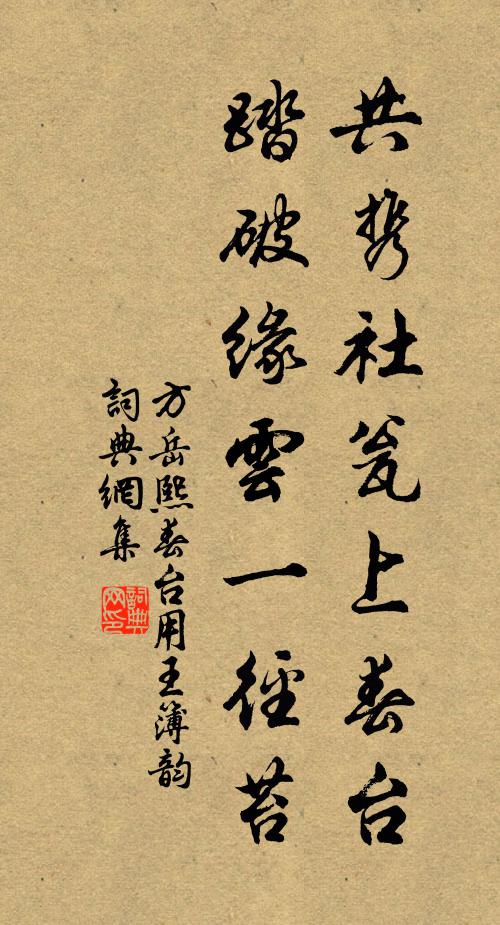 共携社瓮上春台
踏破缘雲一徑苔
方岳熙春台用王簿韵
詞典網集
詞典网印